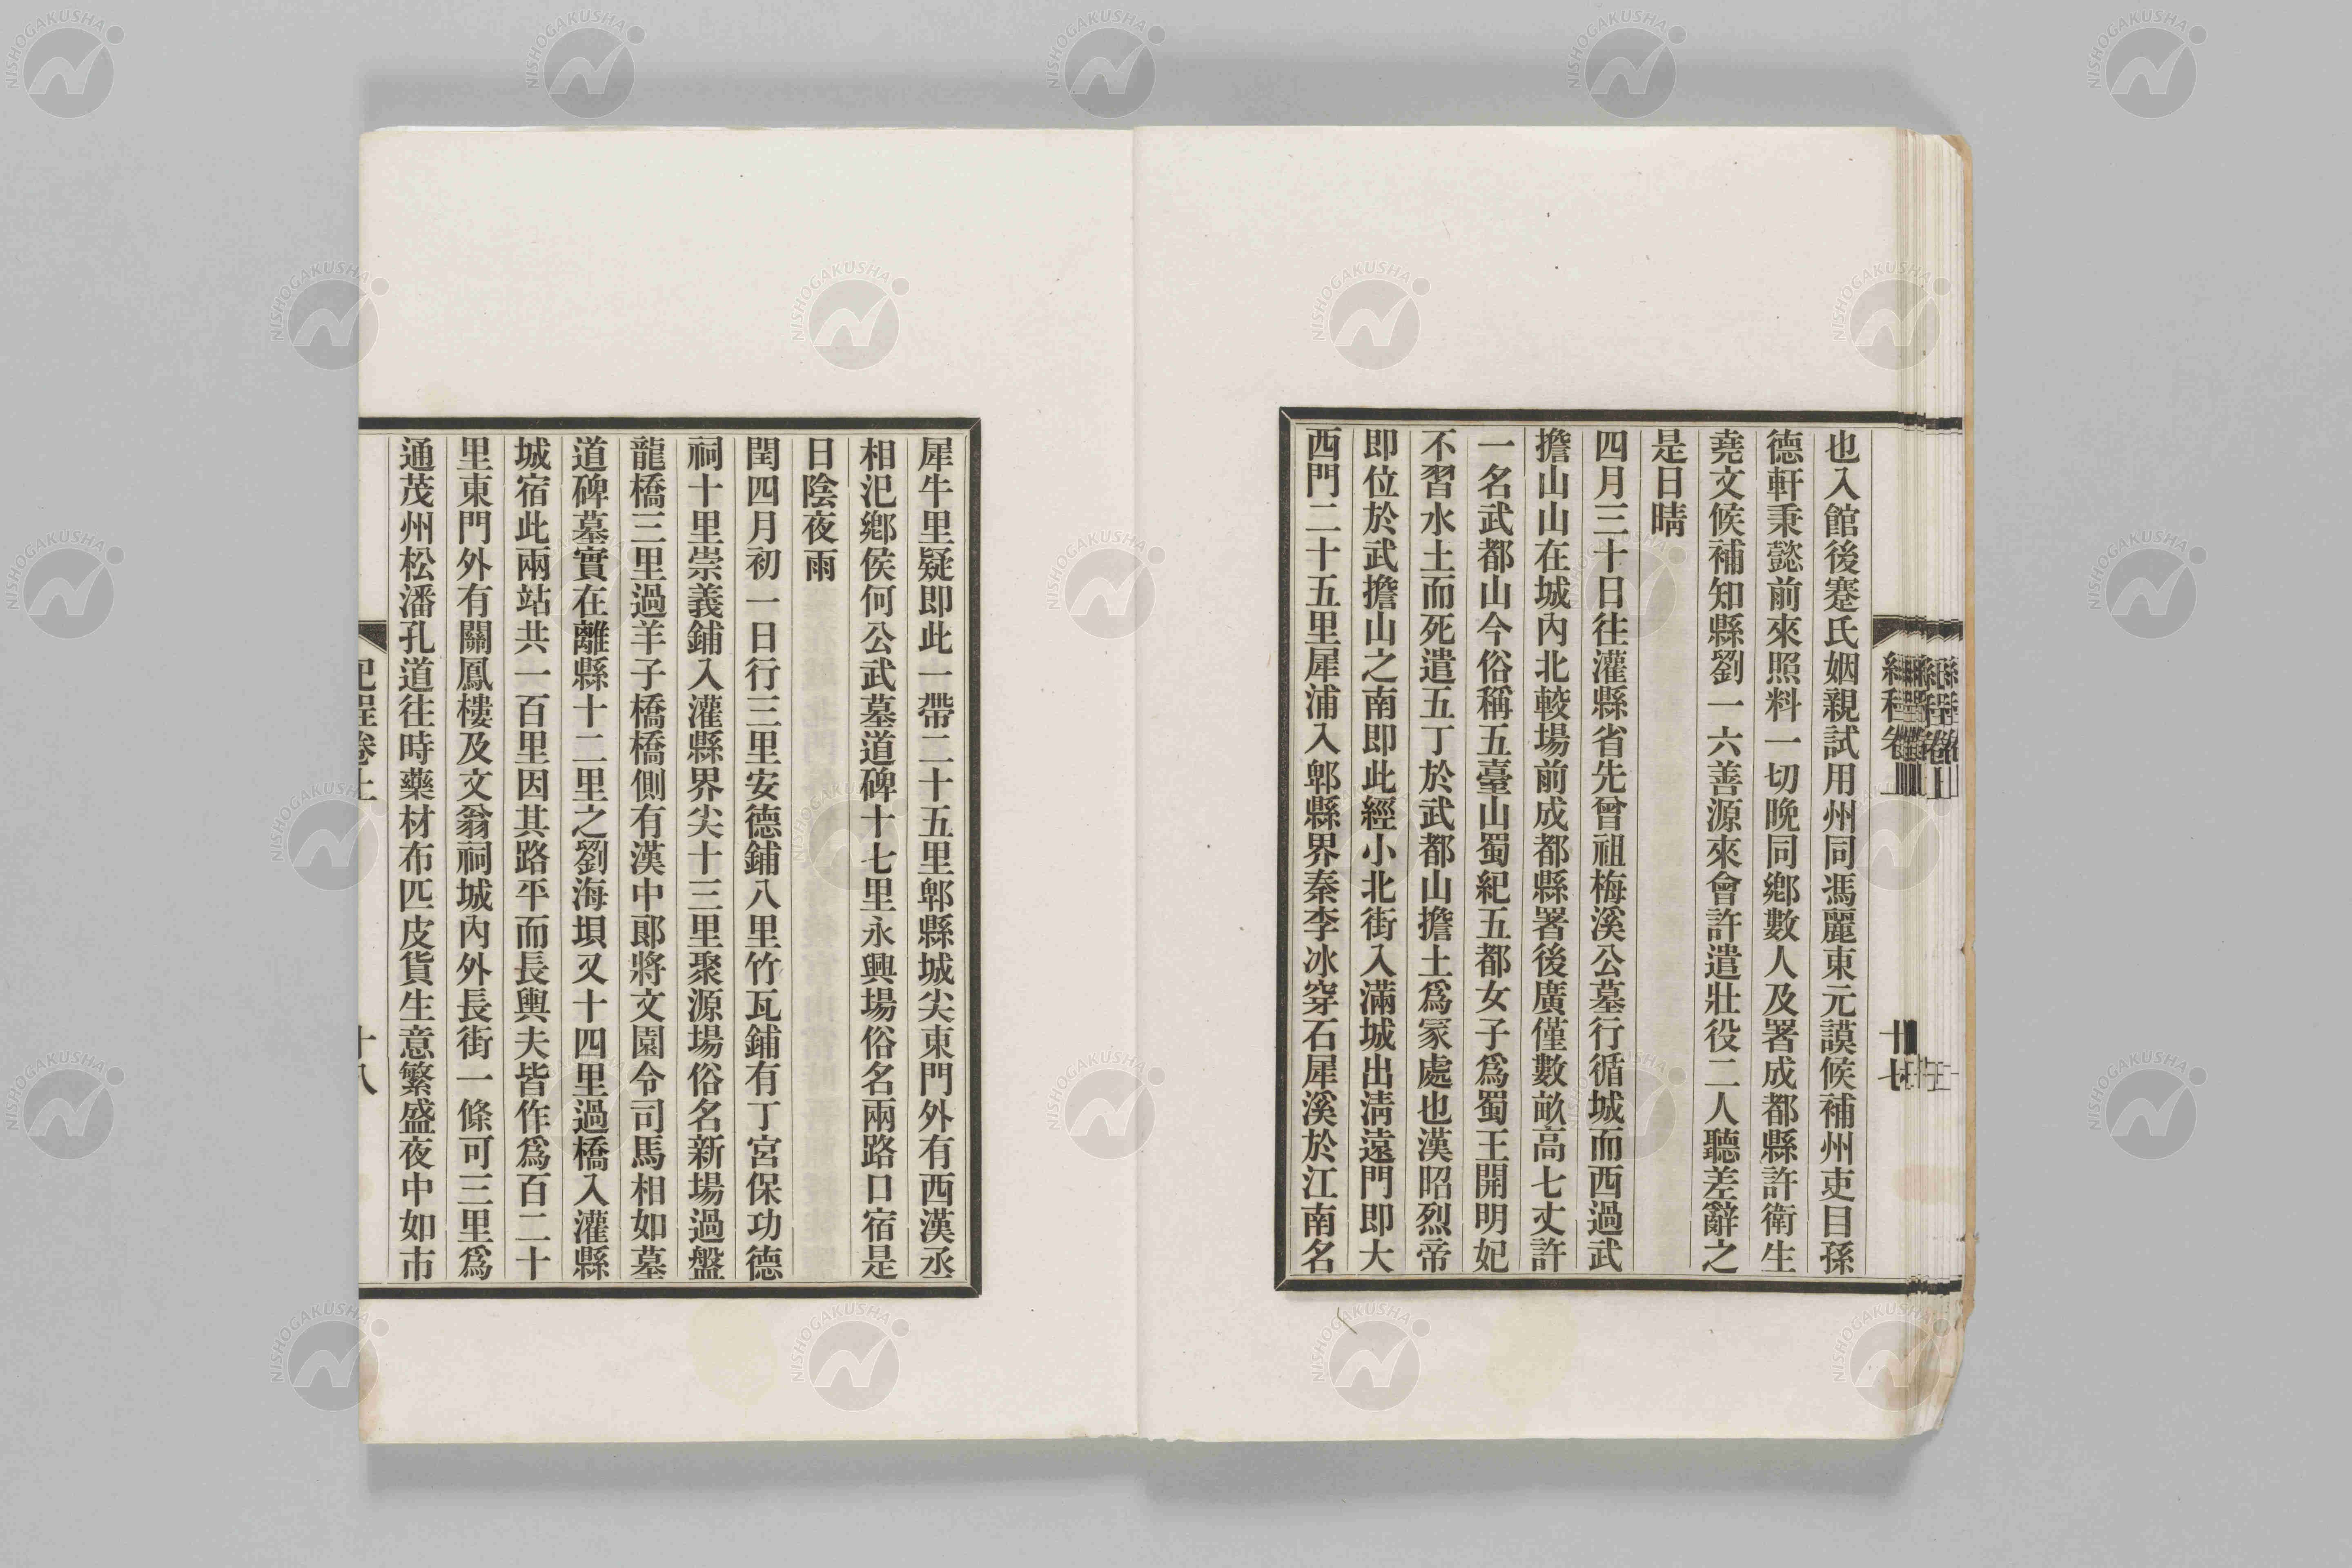 也入館後蹇氏姻親試用州同馮麗東元謨候補州吏目孫
德軒秉懿前來照料一切晚同鄉數人及署成都縣許衛生
堯文候補知縣劉一六善源來會許遣壯役二人聽差辭之
是日晴
四月三十日往灌縣省先曾祖梅溪公墓行循城而西過武
擔山山在城內北較場前成都縣署後廣僅數畝高七丈許
一名武都山今俗稱五臺山蜀紀五都女子爲蜀王開明妃
不習水土而死遣五丁於武都山擔土爲冢處也漢昭烈帝
即位於武擔山之南即此經小北街入滿城出清遠門即大
西門二十五里犀浦入郫縣界秦李冰穿石犀溪於江南名
犀牛里疑即此一帶二十五里郫縣城尖東門外有西漢丞
相汜鄉侯何公武墓道碑十七里永興場俗名兩路口宿是
日陰夜雨
閏四月初一日行三里安德鋪八里竹瓦鋪有丁宮保功德
祠十里崇義鋪入灌縣界尖十三里聚源場俗名新場過盤
龍橋三里過羊子橋橋側有漢中郎將文園令司馬相如墓
道碑墓實在離縣十二里之劉海壩又十四里過橋入灌縣
城宿此兩站共一百里因其路平而長輿夫皆作爲百二十
里東門外有關鳳樓及文翁祠城內外長街一條可三里爲
通茂州松潘孔道往時藥材布匹皮貨生意繁盛夜中如市
紀程卷上
十八
NISHOGAKUSHA